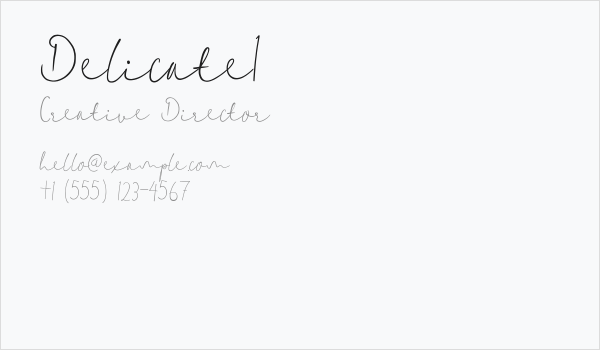 Delicate1
Creative Director
hello@example.com
+1 (555) 123-4567